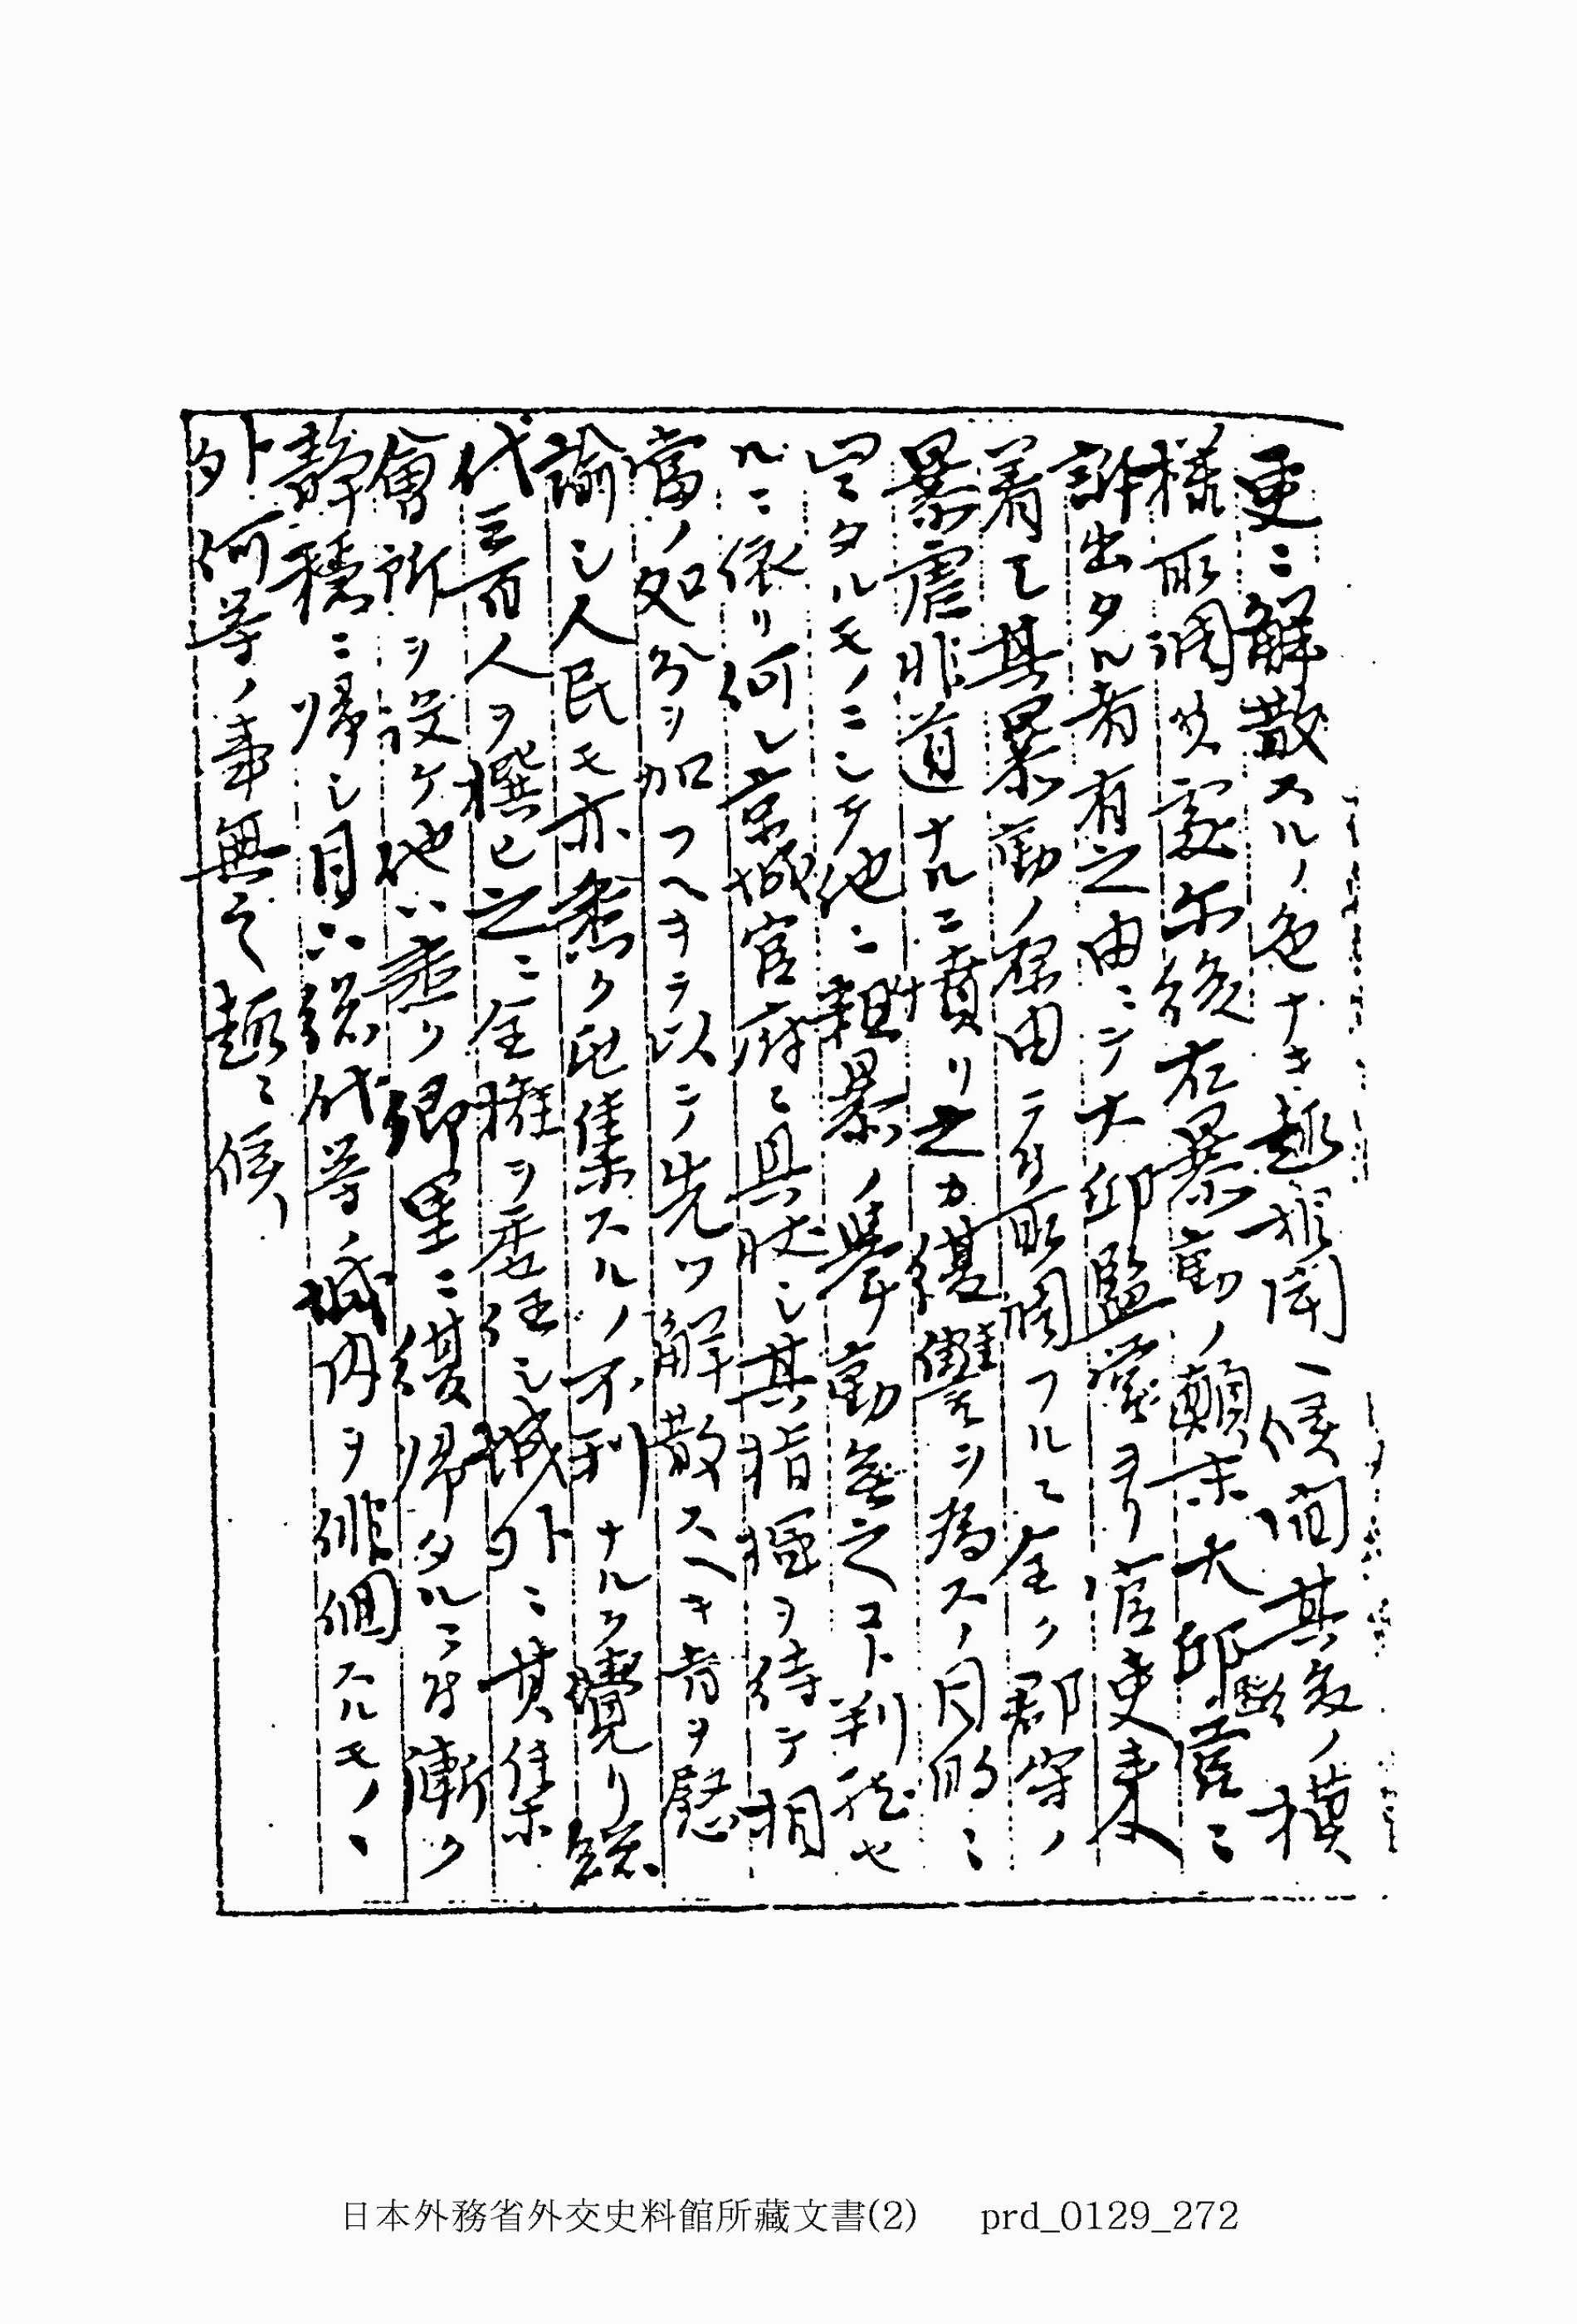 更ニ解散スルノ色ナキ趣相聞ヘ候間其多ノ模
様取調候處尓後右暴動ノ顛末大邱監營ニ
訴出タル者有之由ニテ大邱監營ヨリ官吏来
着シ其暴動ノ原由ヲ取調フルニ全ク郡守ノ
暴虐非道ナルニ憤リ之カ復讐ヲ為スノ目的ニ
出タルモノニシテ他ニ粗暴ノ擧動無之コト判然セ
ルニ依リ何レ京城官府ニ具状シ其指揮ヲ待テ相
當ノ処分ヲ加フヘキヲ以テ先ツ解散スヘキ旨ヲ懇
諭シ人民モ亦悉ク屯集スルノ不利ナルヲ覺リ総
代三百人ヲ撰ヒ之ニ全権ヲ委任シ城外ニ其集
會所ヲ設ケ他ハ悉ク郷里ニ復帰タルヲ以漸ク
静穏ニ帰シ目下総代等ノ城内ヲ徘徊スルモノヽ
外何等ノ事無之趣ニ候
日本外務省外交史料館所藏文書(2) prd_0129_272